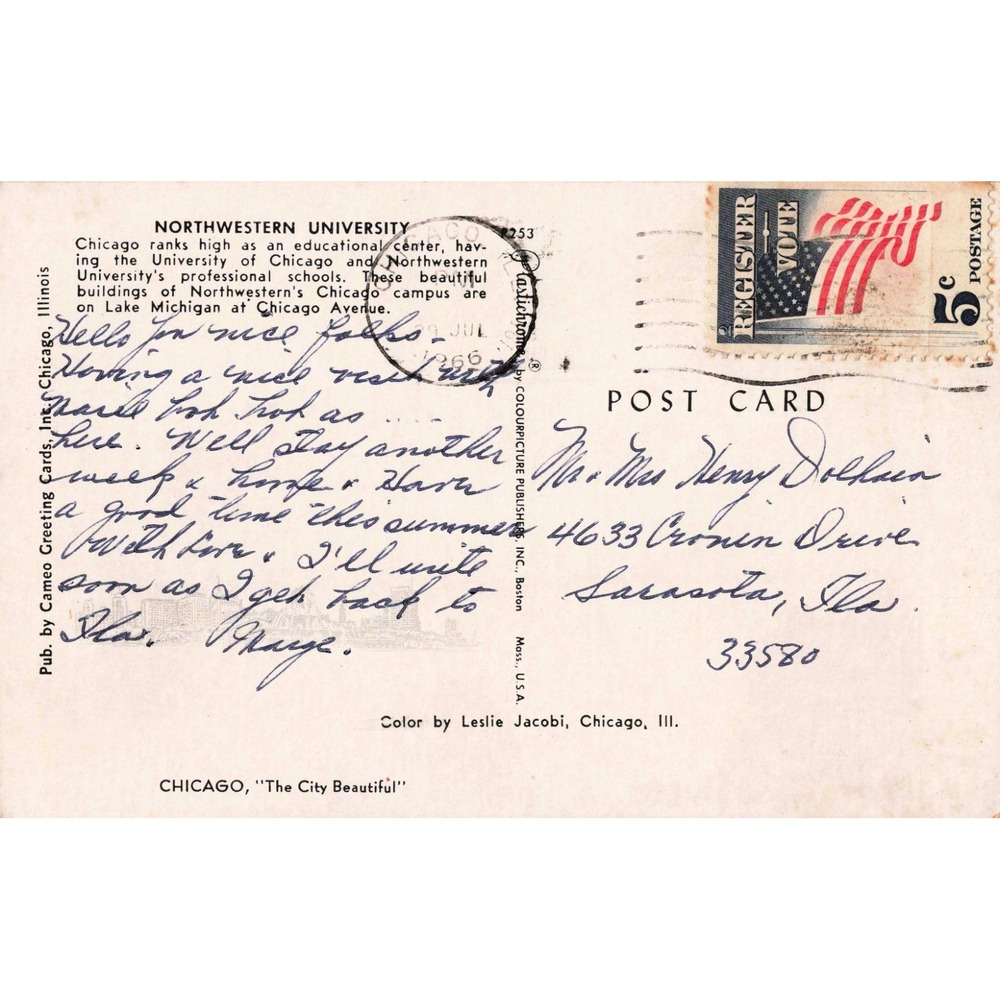 NORTHWESTERN UNIVERSITY
Chicago ranks high as an educational center, hav-
ing the University of Chicago and Northwestern
University's professional schools. These beautiful
buildings of Northwestern's Chicago campus are
on Lake Michigan at Chicago Avenue.
Hello you nice folks -
Having a nice visit with
Marie but hot as ....
here. Will stay another
week & home. Have
a good time this summer
With Love. I'll write
soon as I get back to
Fla. Marge.
Pub. by Cameo Greeting Cards, Inc. Chicago, Illinois
CHICAGO
29 JUL
1966
P253
Plastichrome® by COLOURPICTURE PUBLISHERS, INC., Boston Mass., U.S.A.
REGISTER
VOTE
5c
POSTAGE
POST CARD
Mr. Mrs Henry
4633 Cronin Drive
Sarasota, Fla.
33580
Color by Leslie Jacobi, Chicago, Ill.
CHICAGO, "The City Beautiful"